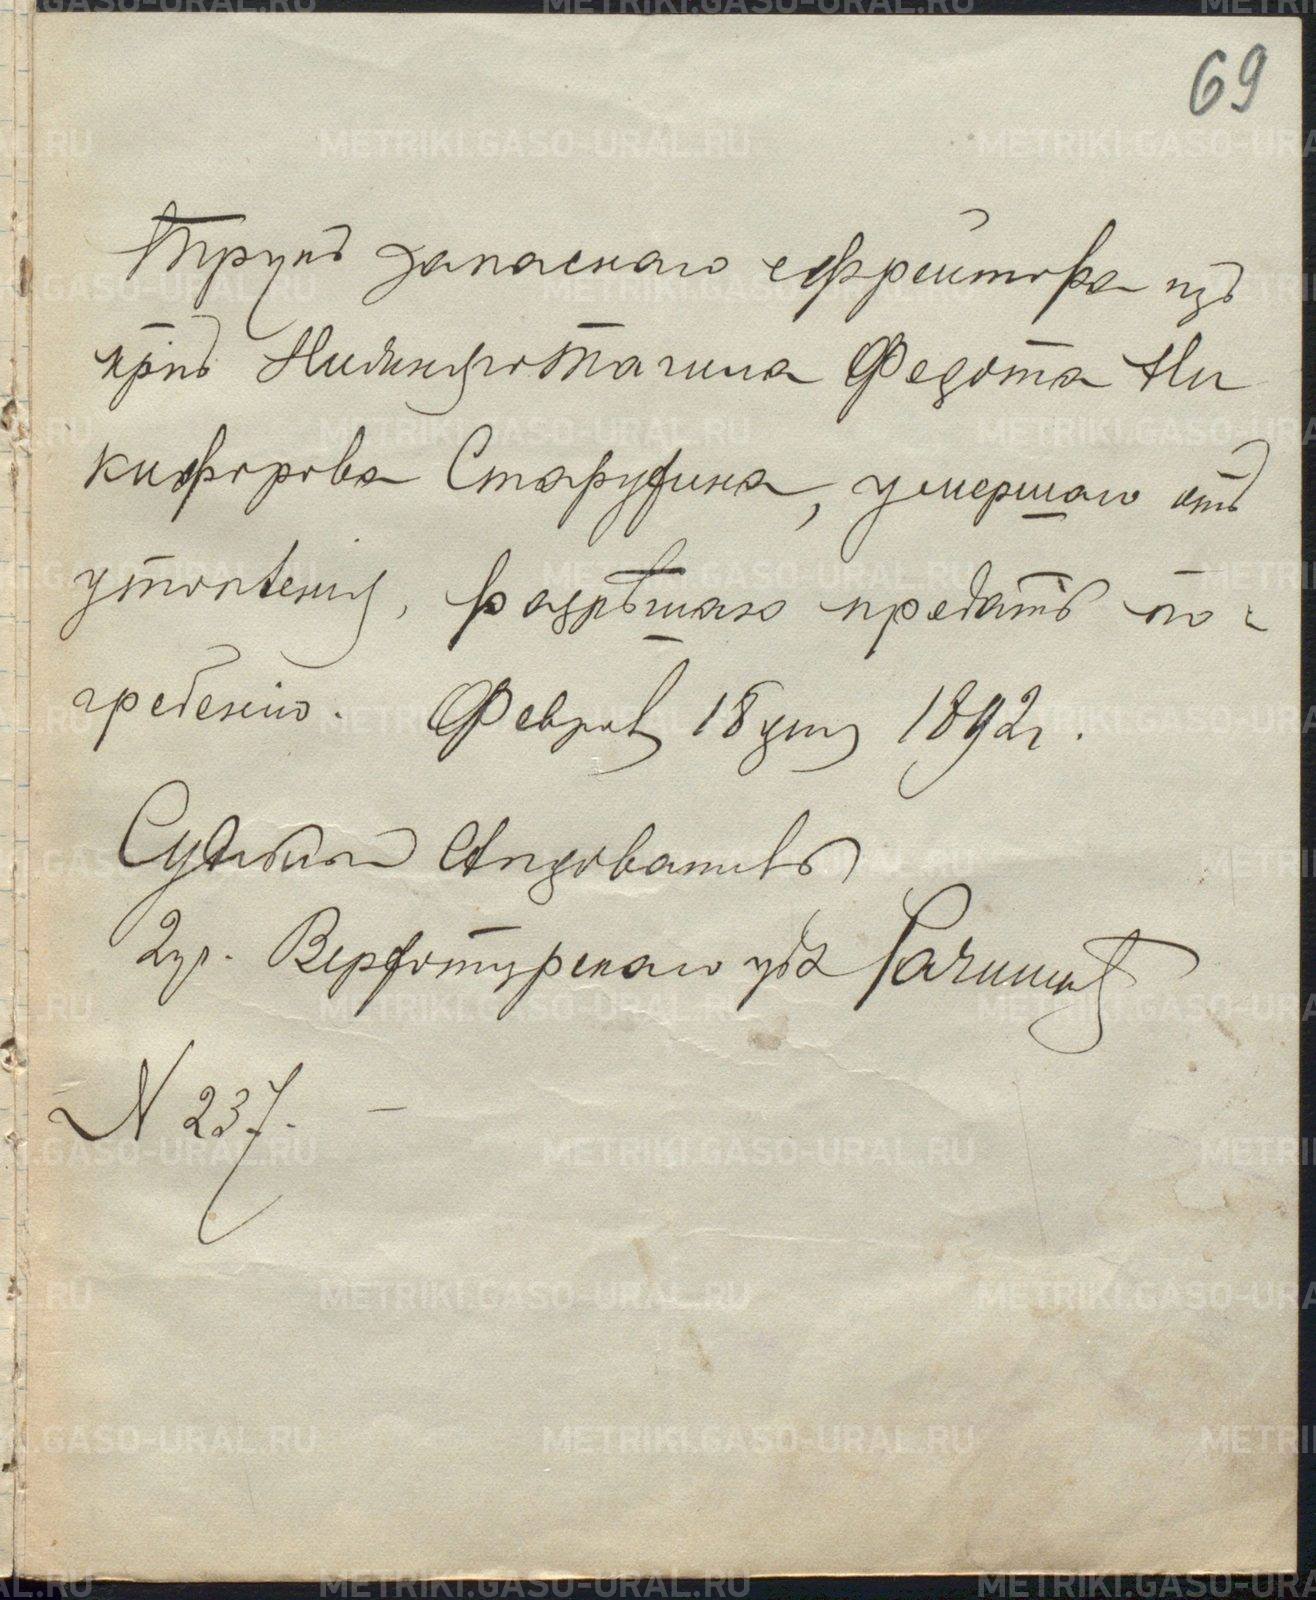 69
Трупъ запаснаго ефрейтора изъ
крнъ Нижнетагила Федота Ни
кифорова, умершаго отъ
утопленія, разрѣшаю предать по-
гребенію. Феврал 18 дня 1892 г.
Судебный Слѣдователь
2 уч. Верхотурскаго у
N 237.
METRIKI.GASO-URAL.RU